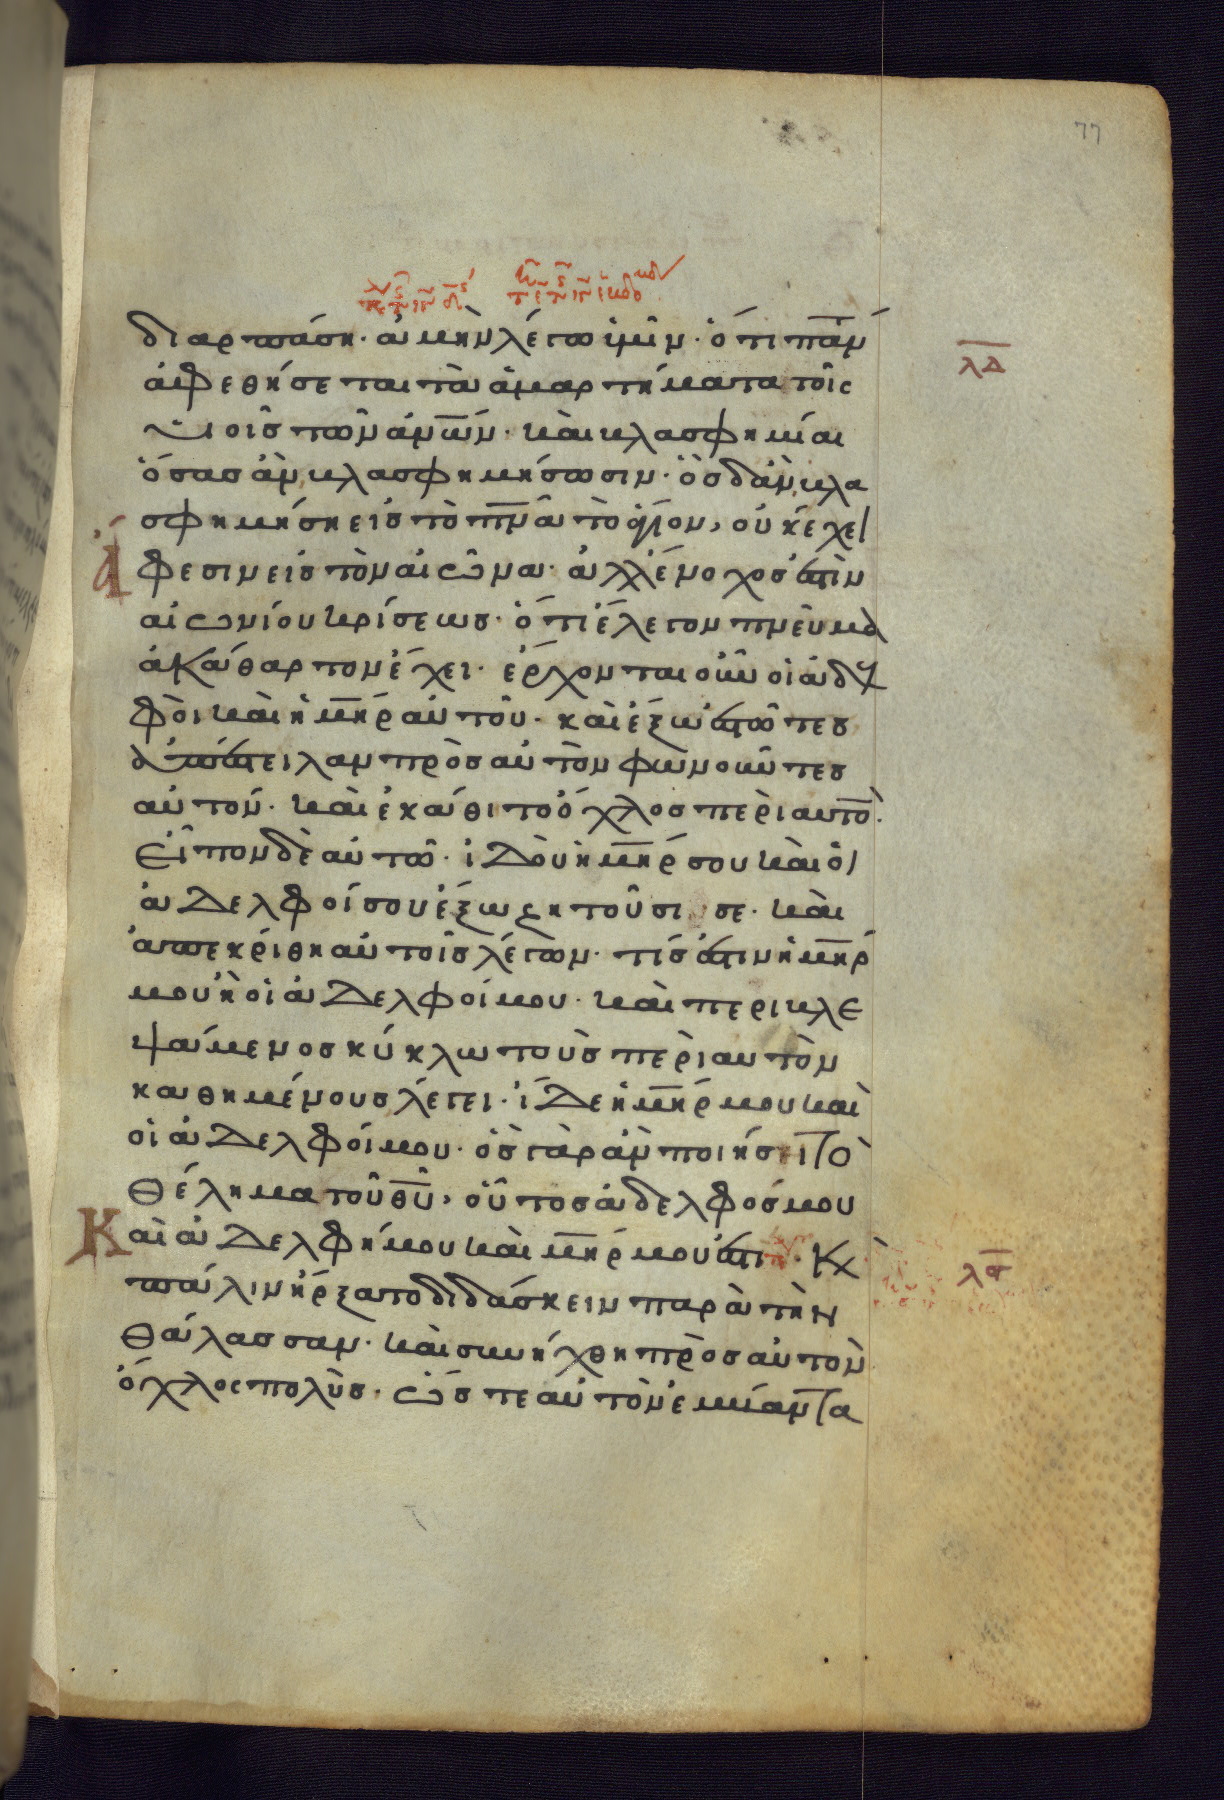 77
διαρπάση· ἀμὴν λέγω ὑμῖν· ὅτι πάν
λδ
ἀφεθήσεται τὰ ἁμαρτήματα τοῖς
υἱοῖς τῶν ἀν̅ω̅ν· καὶ βλασφημίαι
ὅσας ἂν βλασφημήσωσιν· ὃς δ' ἂν βλα
σφημήση εἰς τὸ π̅ν̅α τὸ ἅγιον, οὐκ ἔχει
ἄφεσιν εἰς τὸν αἰῶνα· ἀλλ' ἔνοχός ἐστιν
αἰωνίου κρίσεως· ὅτι ἔλεγον πνεῦμα
ἀκάθαρτον ἔχει· ἔρχονται οὖν οἱ ἀδελ
φοὶ καὶ ἡ μ̅η̅ρ αὐτοῦ· καὶ ἔξω ἑστῶτες
ἀπέστειλαν πρὸς αὐτὸν φωνοῦντες
αὐτόν· καὶ ἐκάθιτο ὄχλος περὶ αυτὸ̅·
Εἶπον δὲ αὐτῶ· ἰδοὺ ἡ μ̅η̅ρ σου καὶ οἱ
ἀδελφοί σου ἔξω ζητοῦσι σε· καὶ
ἀπεκρίθη αὐτοῖς λέγων· τίς ἐστιν ἡ μ̅η̅ρ
μου ἢ οἱ ἀδελφοί μου· καὶ περιβλε
ψάμενος κύκλω τοὺς περὶ αυτὸν
καθημένους λέγει· ἴδε ἡ μ̅η̅ρ μου καὶ
οἱ ἀδελφοί μου· ὃς γὰρ ἂν ποιήσει τὸ
Θέλημα τοῦ θ̅υ̅, οὗτος ἀδελφός μου
Καὶ ἀδελφή μου καὶ μ̅η̅ρ μου ἐστι· Κ(αὶ)
λϛ
πάλιν ἤρξατο διδάσκειν παρὰ τὴν
Θάλασσαν· καὶ συνήχθη πρὸς αὐτὸν
ὄχλος πολὺς· ὥστε αὐτὸν ἐμβάντα